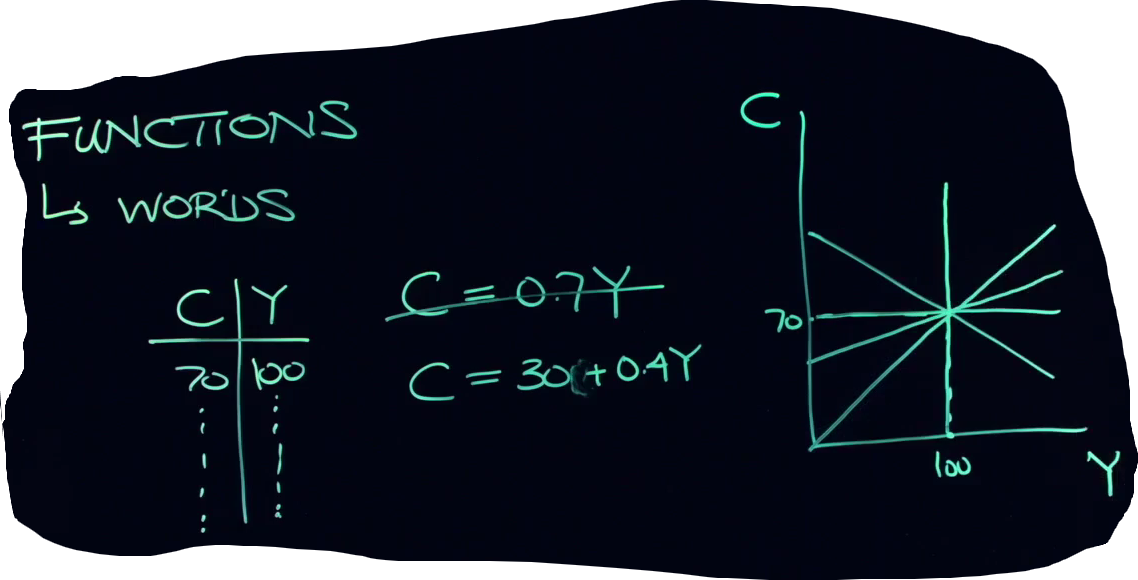 FUNCTIONS
↳ WORDS
C Y
70 100
C = 0.7Y
C = 30 + 0.4Y
C
70
100
Y